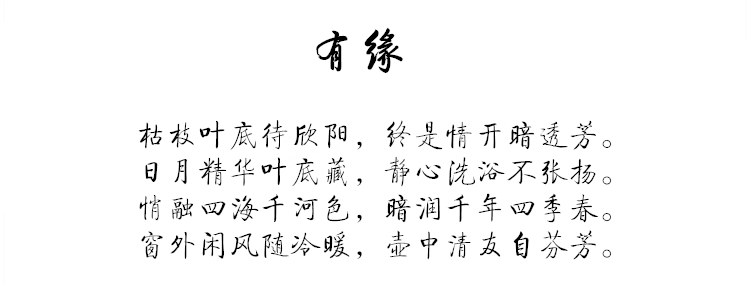 有缘
枯枝叶底待欣阳，终是情开暗透芳。
日月精华叶底藏，静心洗浴不张扬。
悄融四海千河色，暗润千年四季春。
窗外闲风随冷暖，壶中清友自芬芳。